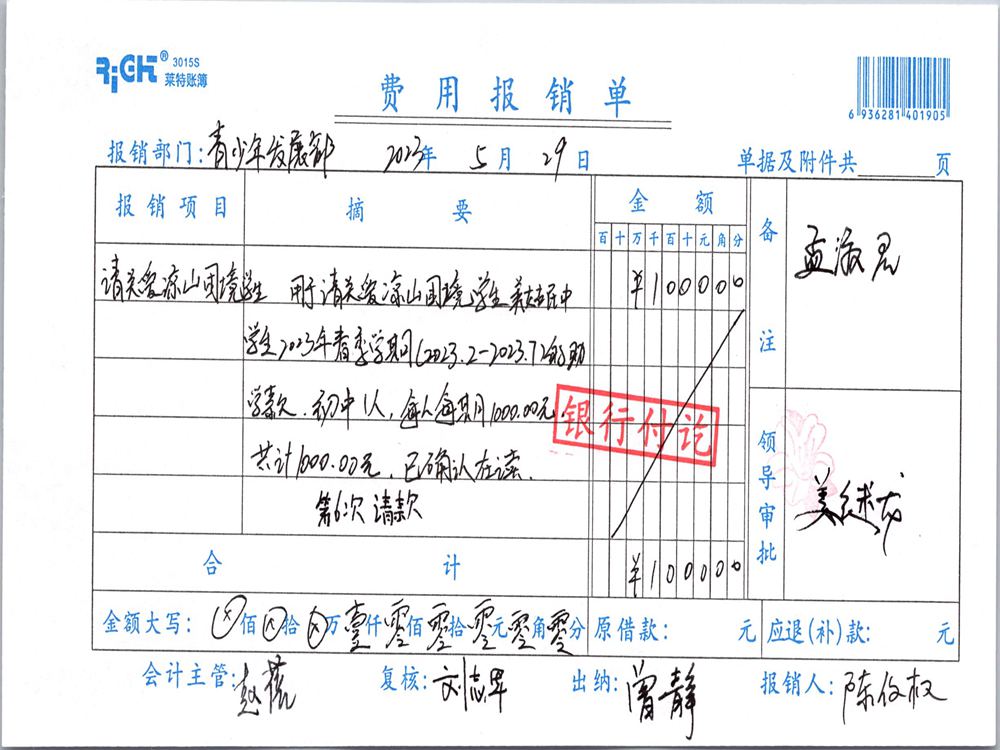 RiGHT® 3015S
莱特账簿
费用报销单
6 936281 401905
报销部门:青少年发展部 2023年 5月 29日 单据及附件共 页
报销项目 摘要 金额 备注
百十万千百十元角分
孟淑君
请关爱凉山困境学生 用于请关爱凉山困境学生美姑民中 ¥100000
学生2023年春季学期(2023.2-2023.7)的助
学款.初中1人,每人每期1000.00元,
共计1000.00元,已确认在读.
第6次请款
银行付讫
领导审批
合计 ¥100000
金额大写: ⊗佰⊗拾⊗万壹仟零佰零拾零元零角零分 原借款: 元 应退(补)款: 元
会计主管: 复核:刘志军 出纳:曾静 报销人:陈俊权